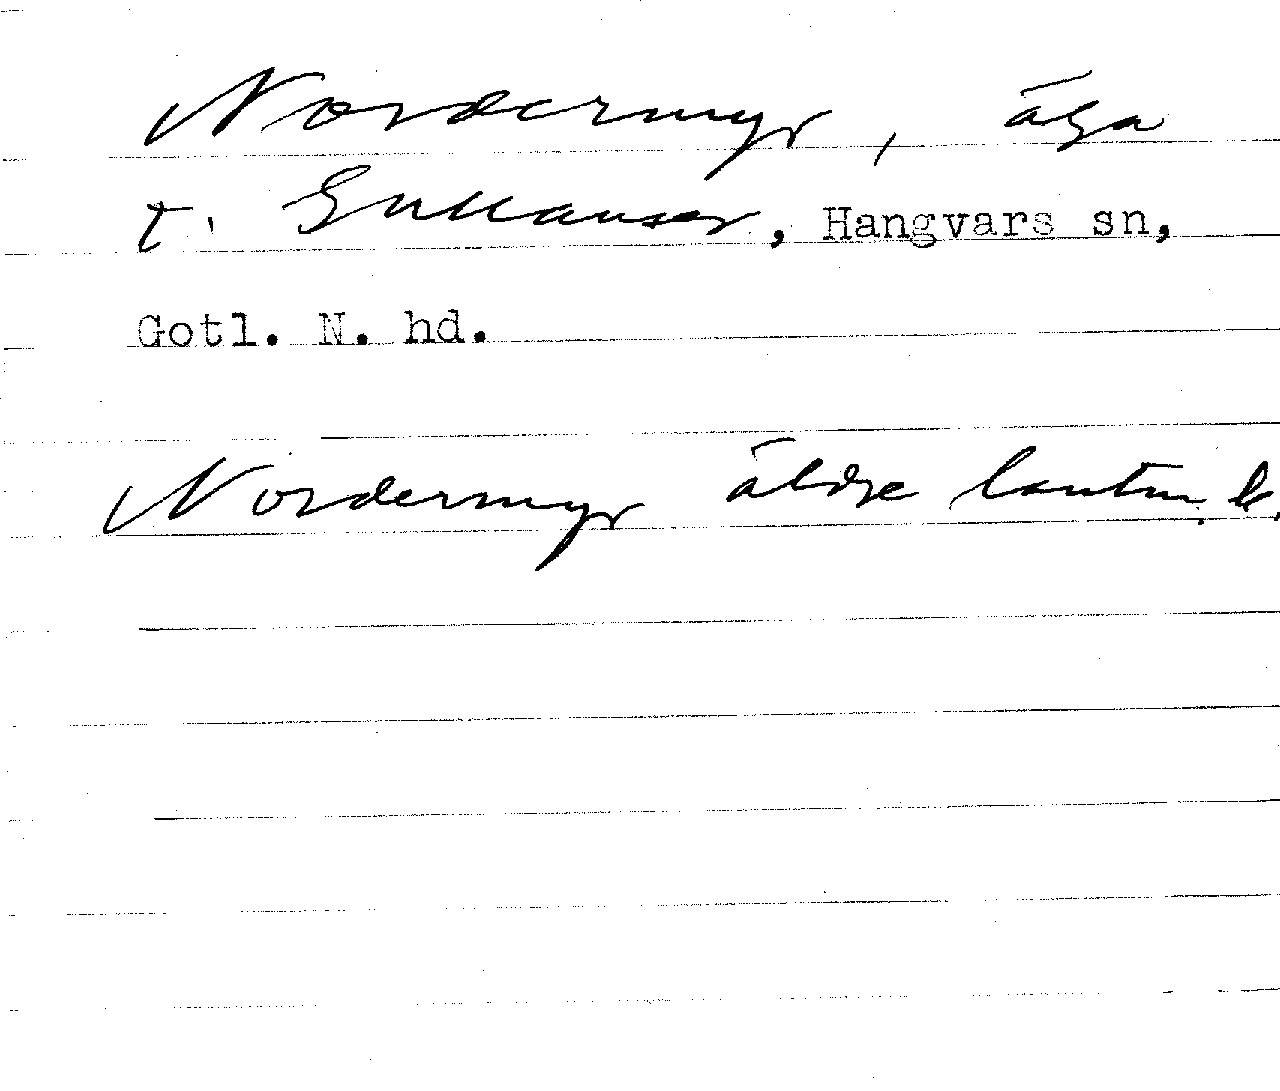 Nordermyr, äga
t. Suderhauser, Hangvars sn,
Gotl. N. hd.
Nordermyr äldre lantm. k.